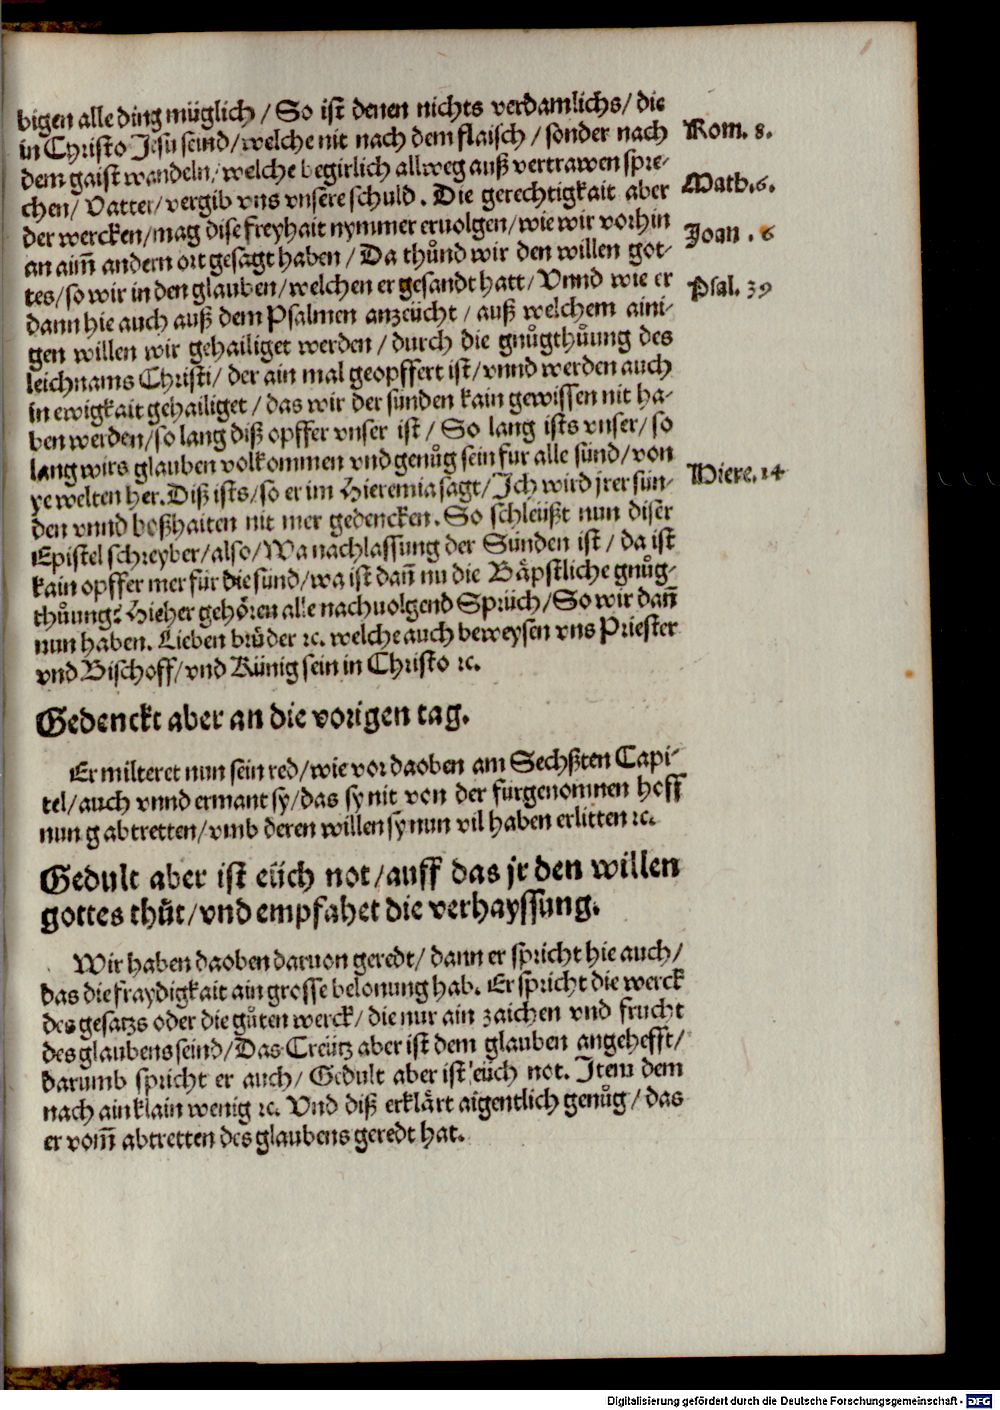 bigen alle ding müglich / So ist denen nichts verdamlichs / die
in Christo Jesu seind / welche nit nach dem flaisch / sonder nach
dem gaist wandeln / welche begirlich allweg auß vertrawen spre⸗
chen / Vatter / vergib vns vnsere schuld . Die gerechtigkait aber
der wercken / mag dise freyhait nymmer eruolgen / wie wir vorhin
an aim̄ andern ort gesagt haben / Da thůnd wir den willen got⸗
tes / so wir in den glauben / welchen er gesandt hatt / Vnnd wie er
dann hie auch auß dem Psalmen anzeücht / auß welchem aini⸗
gen willen wir gehailiget werden / durch die gnůgthůung des
leichnams Christi / der ain mal geopffert ist / vnnd werden auch
in ewigkait gehailiget / das wir der sünden kain gewissen nit ha⸗
ben werden / so lang diß opffer vnser ist / So lang ists vnser / so
lang wirs glauben volkommen vnd genůg sein für alle sünd / von
ye welten her. Diß ists / so er im Hieremia sagt / Ich wird jrer sün⸗
den vnnd boßhaiten nit mer gedencken. So schleüßt nun diser
Epistel schreyber / also / Wa nachlassung der Sünden ist / da ist
kain opffer mer für die sünd / wa ist dañ nu die Bäpstliche gnůg⸗
thůung? Hieher gehören alle nachuolgend Sprüch / So wir dañ
nun haben. Lieben brüder ꝛc. welche auch beweysen vns Priester
vnd Bischoff / vnd Künig sein in Christo ꝛc.
Rom. 8.
Math. 6.
Joan . 6
Psal. 39
Hiere. 14
Gedenckt aber an die vorigen tag.
Er milteret nun sein red / wie vor daoben am Sechßten Capi⸗
tel / auch vnnd ermant sy / das sy nit von der fürgenomnen hoff
nung abtretten / vmb deren willen sy nun vil haben erlitten ꝛc.
Gedult aber ist eüch not / auff das jr den willen
gottes thůt / vnd empfahet die verhayssung.
Wir haben daoben daruon geredt / dann er spricht hie auch /
das die fraydigkait ain grosse belonung hab. Er spricht die werck
des gesatzs oder die gůten werck / die nur ain zaichen vnd frucht
des glaubens seind / Das Creütz aber ist dem glauben angehefft /
darumb spricht er auch / Gedult aber ist eüch not. Item dem
nach ain klain wenig ꝛc. Vnd diß erklärt aigentlich genůg / das
er vom̄ abtretten des glaubens geredt hat.
Digitalisierung gefördert durch die Deutsche Forschungsgemeinschaft - DFG